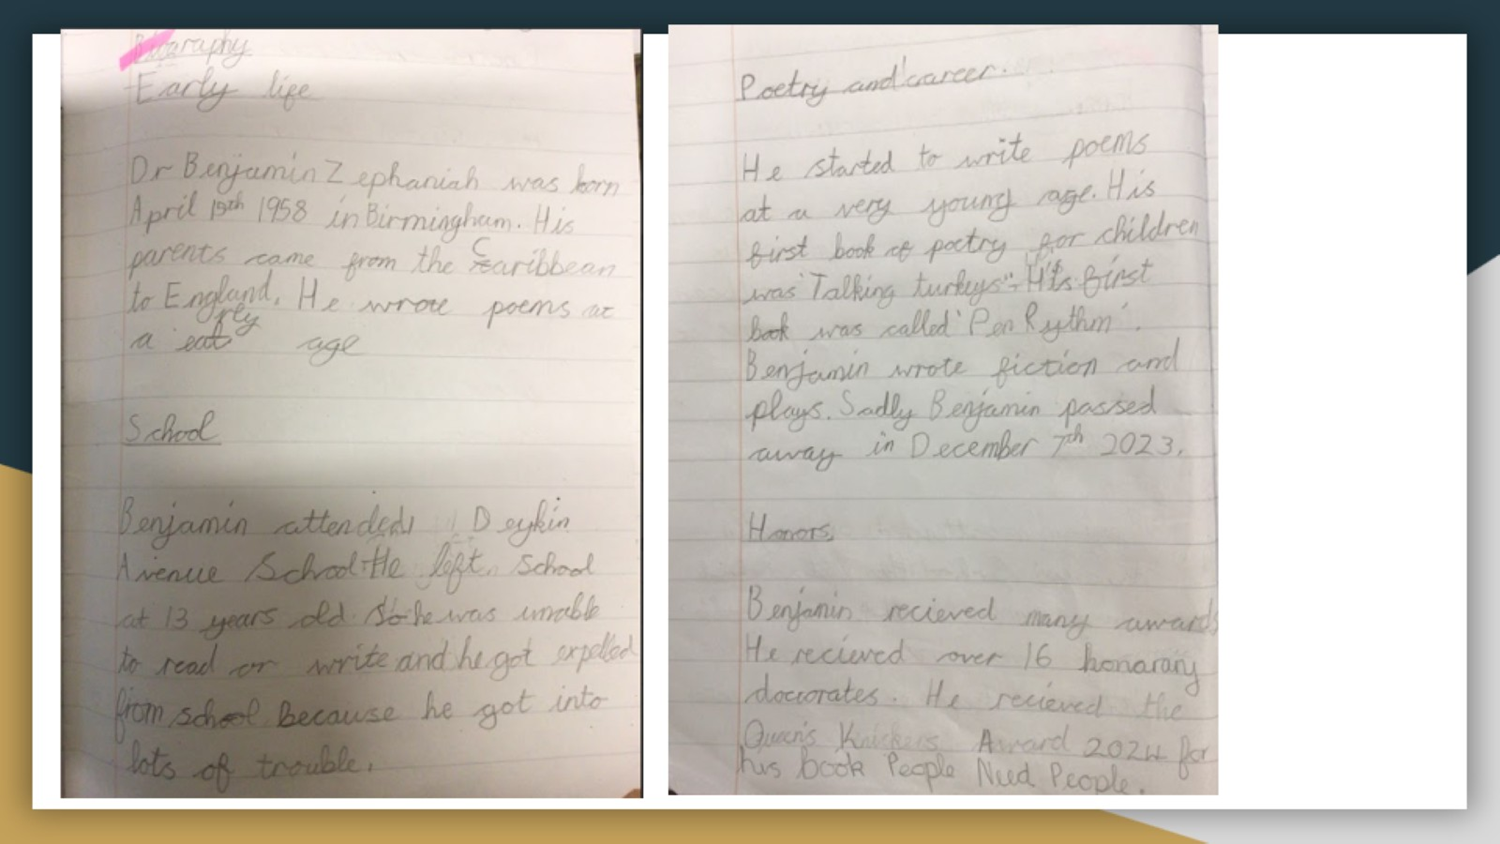 Biography
Early life
Dr Benjamin Zephaniah was born
April 15th 1958 in Birmingham. His
parents came from the Caribbean
to England. He wrote poems at
a early age
School
Benjamin attended Deykin
Avenue School. He left school
at 13 years old. So he was unable
to read or write and he got expelled
from school because he got into
lots of trouble.
Poetry and career.
He started to write poems
at a very young age. His
first book of poetry for children
was "Talking turkeys". His first
book was called 'Pen Rythm'.
Benjamin wrote fiction and
plays. Sadly Benjamin passed
away in December 7th 2023.
Honors
Benjamin recieved many awards
He recieved over 16 honarary
doctorates. He recieved the
Queen's Knickers Award 2024 for
his book People Need People.